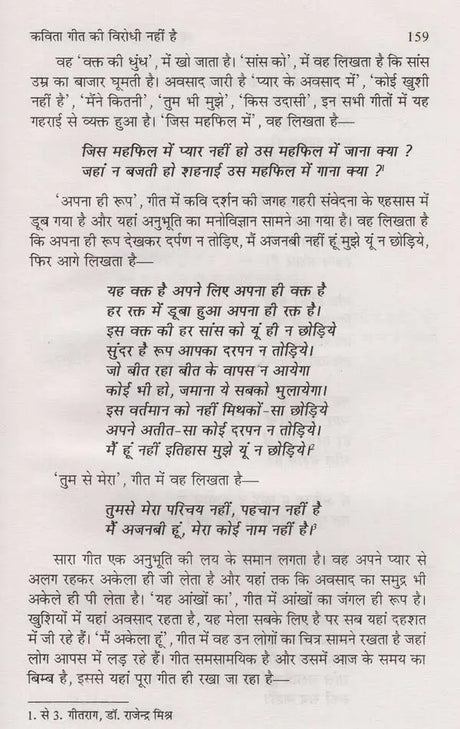 कविता गीत की विरोधी नहीं है 159
वह 'वक्त की धुंध', में खो जाता है। 'सांस को', में वह लिखता है कि सांस
उम्र का बाजार घूमती है। अवसाद जारी है 'प्यार के अवसाद में', 'कोई खुशी
नहीं है', 'मैंने कितनी', 'तुम भी मुझे', 'किस उदासी', इन सभी गीतों में यह
गहराई से व्यक्त हुआ है। 'जिस महफिल में', वह लिखता है—
जिस महफिल में प्यार नहीं हो उस महफिल में जाना क्या ?
जहां न बजती हो शहनाई उस महफिल में गाना क्या ?¹
'अपना ही रूप', गीत में कवि दर्शन की जगह गहरी संवेदना के एहसास में
डूब गया है और यहां अनुभूति का मनोविज्ञान सामने आ गया है। वह लिखता है
कि अपना ही रूप देखकर दर्पण न तोड़िए, मैं अजनबी नहीं हूं मुझे यूं न छोड़िये,
फिर आगे लिखता है—
यह वक्त है अपने लिए अपना ही वक्त है
हर रक्त में डूबा हुआ अपना ही रक्त है।
इस वक्त की हर सांस को यूं ही न छोड़िये
सुंदर है रूप आपका दरपन न तोड़िये।
जो बीत रहा बीत के वापस न आयेगा
कोई भी हो, जमाना ये सबको भुलायेगा।
इस वर्तमान को नहीं मिथकों-सा छोड़िये
अपने अतीत-सा कोई दरपन न तोड़िये।
मैं हूं नहीं इतिहास मुझे यूं न छोड़िये।²
'तुम से मेरा', गीत में वह लिखता है—
तुमसे मेरा परिचय नहीं, पहचान नहीं है
मैं अजनबी हूं, मेरा कोई नाम नहीं है।³
सारा गीत एक अनुभूति की लय के समान लगता है। वह अपने प्यार से
अलग रहकर अकेला ही जी लेता है और यहां तक कि अवसाद का समुद्र भी
अकेले ही पी लेता है। 'यह आंखों का', गीत में आंखों का जंगल ही रूप है।
खुशियों में यहां अवसाद रहता है, यह मेला सबके लिए है पर सब यहां दहशत
में जी रहे हैं। 'मैं अकेला हूं', गीत में वह उन लोगों का चित्र सामने रखता है जहां
लोग आपस में लड़ रहे हैं। गीत समसामयिक है और उसमें आज के समय का
बिम्ब है, इससे यहां पूरा गीत ही रखा जा रहा है—
1. से 3. गीतराग, डॉ. राजेन्द्र मिश्र